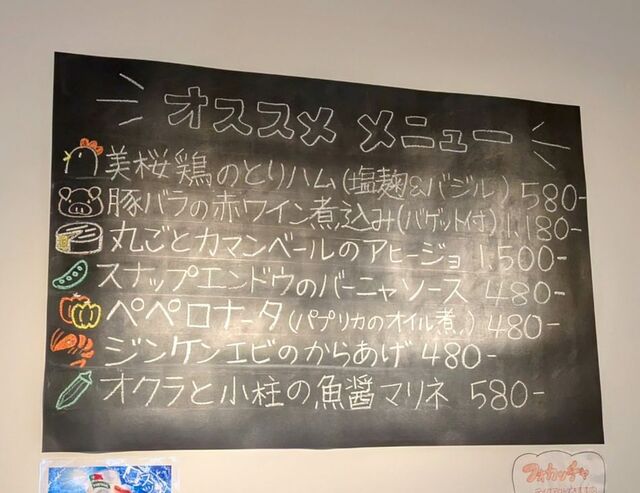 オススメ メニュー
美桜鶏のとりハム(塩麹&バジル) 580-
豚バラの赤ワイン煮込み(バゲット付) 1,180-
丸ごとカマンベールのアヒージョ 1,500-
スナップエンドウのバーニャソース 480-
ペペロナータ(パプリカのオイル煮) 480-
ジンケンエビのからあげ 480-
オクラと小柱の魚醤マリネ 580-
フォカッチャ